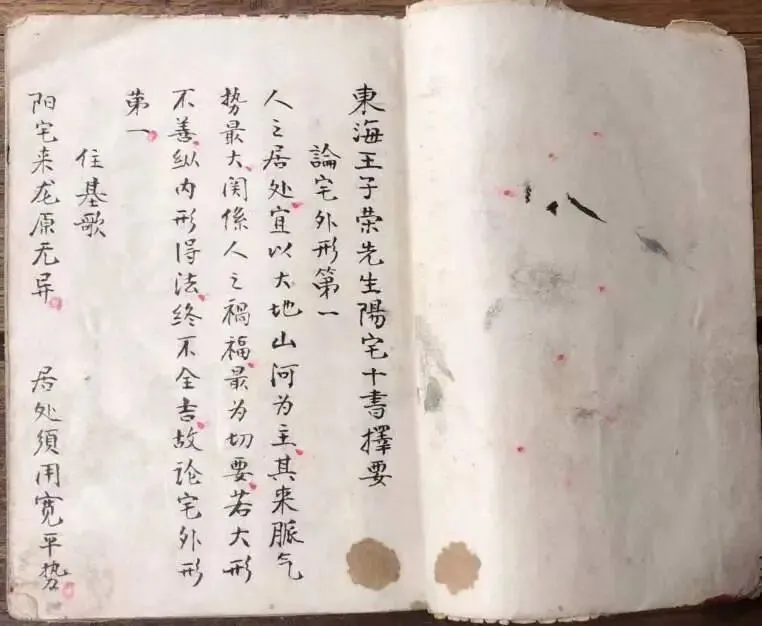 東海王子荣先生陽宅十書擇要
論宅外形第一
人之居处宜以大地山河为主其来脈气
势最大関係人之禍福最为切要若大形
不善纵内形得法终不全吉故论宅外形
第一
住基歌
阳宅来龙原无异 居处須用宽平势